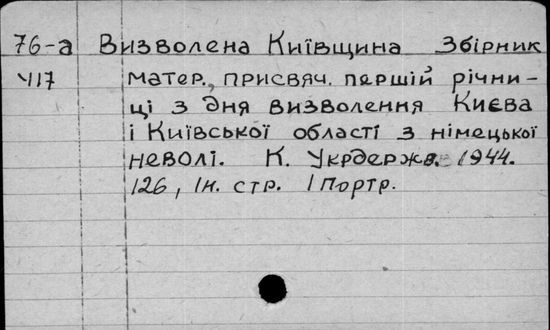 76-а Визволена Київщина Збірник
Ч117 матер., присвяч. першій річни-
ці з дня визволення Києва
і Київської області з німецької
неволі. К. Укрдержв. 1944.
126, 1н. стр. 1 портр.